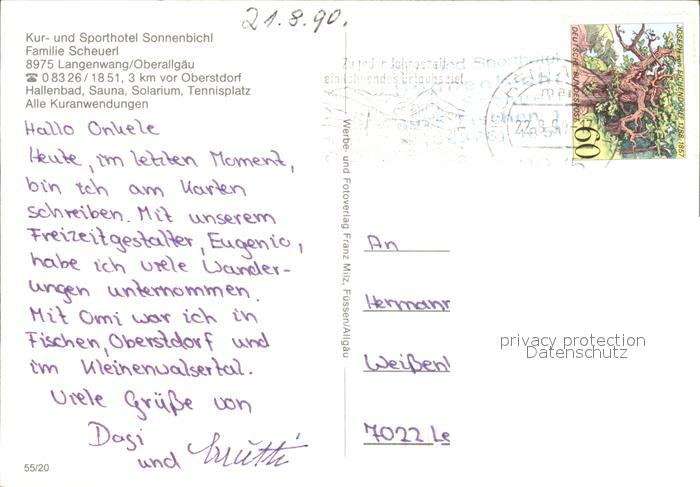 21.8.90.
Kur- und Sporthotel Sonnenbichl
Familie Scheuerl
8975 Langenwang/Oberallgäu
☎ 0 83 26 / 18 51, 3 km vor Oberstdorf
Hallenbad, Sauna, Solarium, Tennisplatz
Alle Kuranwendungen
Hallo Onkele
Heute, im letzten Moment,
bin ich am Karten
schreiben. Mit unserem
Freizeitgestalter, Eugenio,
habe ich viele Wander-
ungen unternommen.
Mit Omi war ich in
Fischen, Oberstdorf und
im Kleinenwalsertal.
Viele Grüße von
Dagi
und Mutti
55/20
Werbe- und Fotoverlag Franz Milz, Füssen/Allgäu
Zu jeder Jahreszeit
ein lohnendes Urlaubsziel
Sporthotel
DEUTSCHE BUNDESPOST
60
JOSEPH von EICHENDORFF 1788-1857
An
Hermann
Weißen
7022 Le
privacy protection
Datenschutz